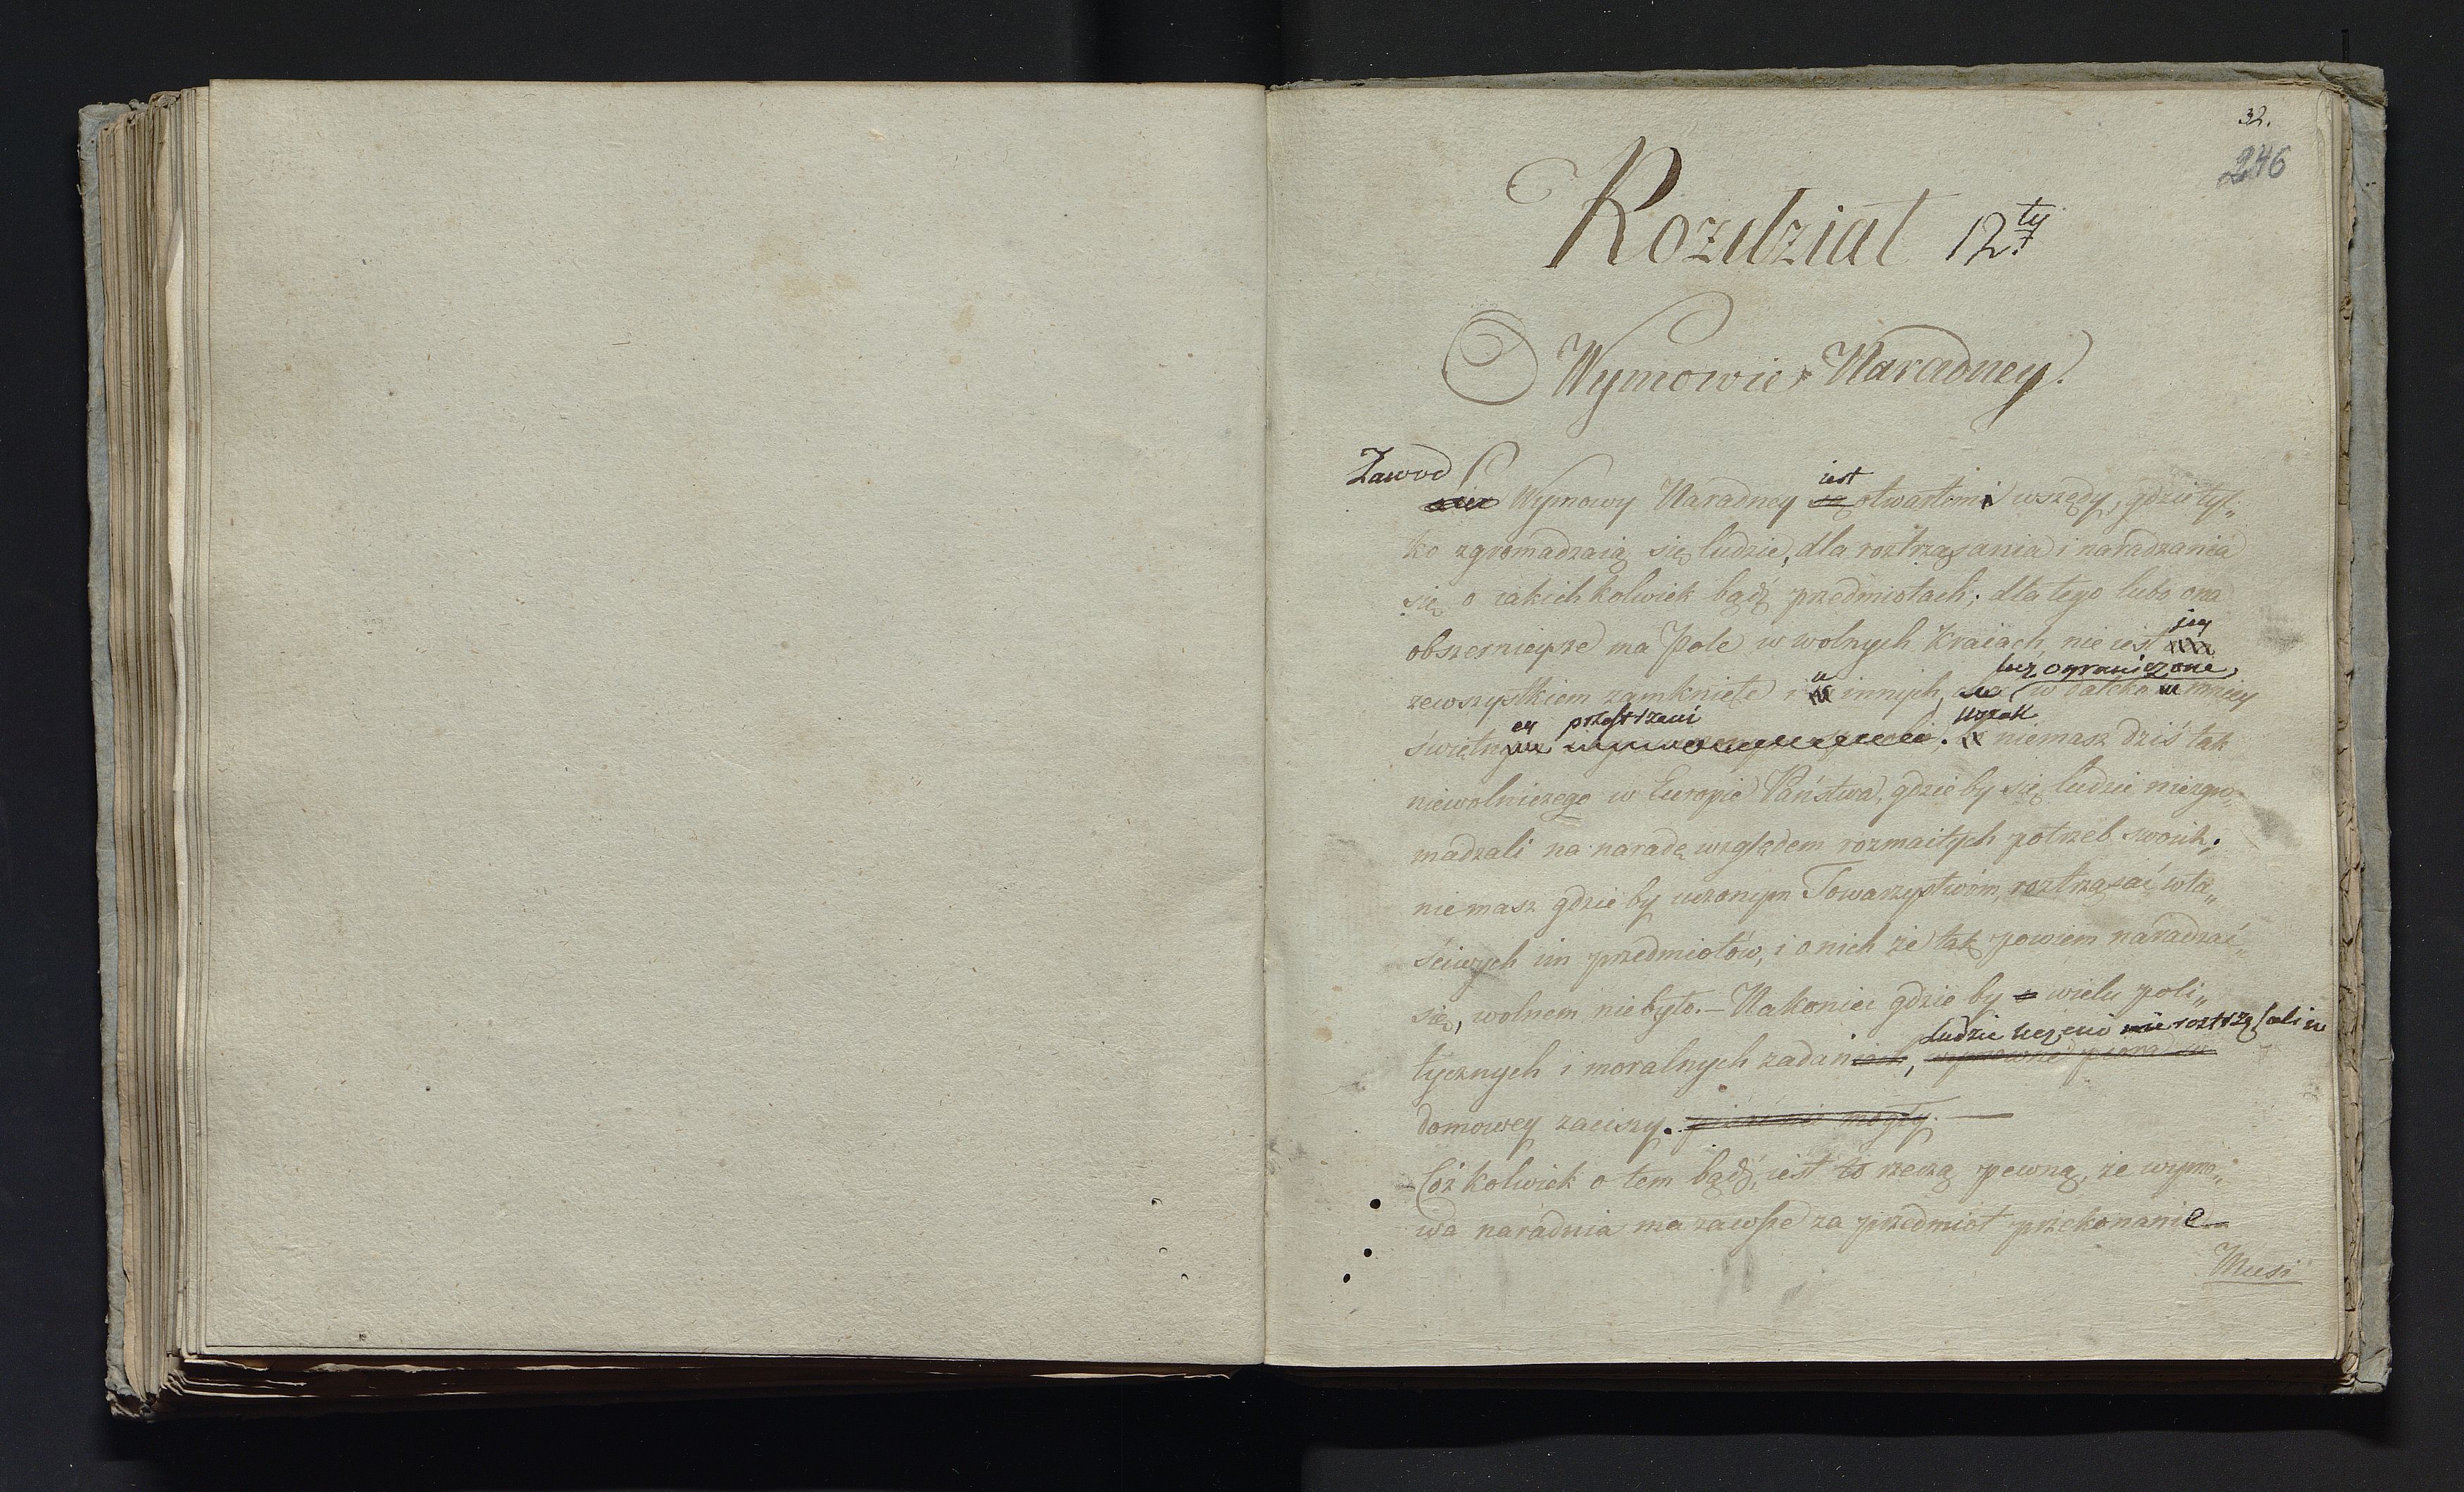 32.
246
Rozdział 12.ty
O Wymowie Naradney.
Zawod
iest
Wymowy Naradney są otwartemi wszędy, gdzie tyl„
ko zgromadzaią się ludzie, dla roztrząsania i naradzania
się o iakichkolwiek bądź przedmiotach; dla tego lubo ona
obszernieysze ma Pole w wolnych Kraiach, nie iest
jey
zewszystkiem zamknięte i innych,
w
lecz ograniczone,
w daleko mniey
świetn
ey przestrzeni
wszak
niemasz dziś tak
niewolniczego w Europie Państwa, gdzie by się ludzie niezgro„
madzali na naradę względem rozmaitych potrzeb swoich;
niemasz gdzie by uczonym Towarzystwóm, roztrząsać wła„
ściwych im przedmiotów, i o nich że tak powiem naradzać„
się, wolnem niebyło. – Nakoniec gdzie by wielu poli„
ludzie uczeni nie roztrząsali w
tycznych i moralnych zadaniach, wymowne pióra w
domowey zaciszy. pisać nie mogły. —
Cóż kolwiek o tem bądź, iest to rzeczą pewną, że wymo„
wa naradnia ma zawsze za przedmiot przekonanie
Musi